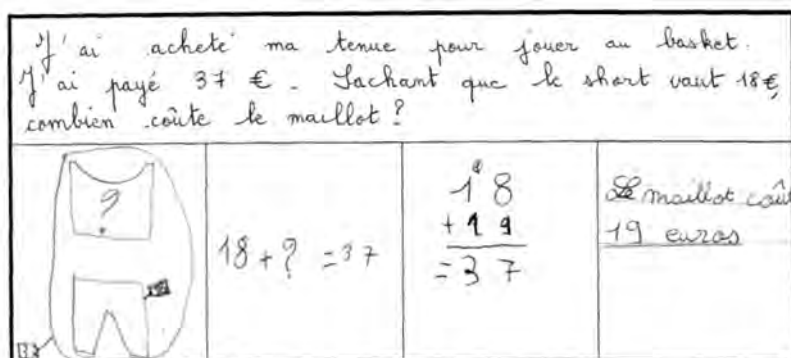 J'ai acheté ma tenue pour jouer au basket.
J'ai payé 37 €. Sachant que le short vaut 18 €,
combien coûte le maillot ?
?
18 + ? = 37
18
+ 19
= 37
Le maillot coût
19 euros